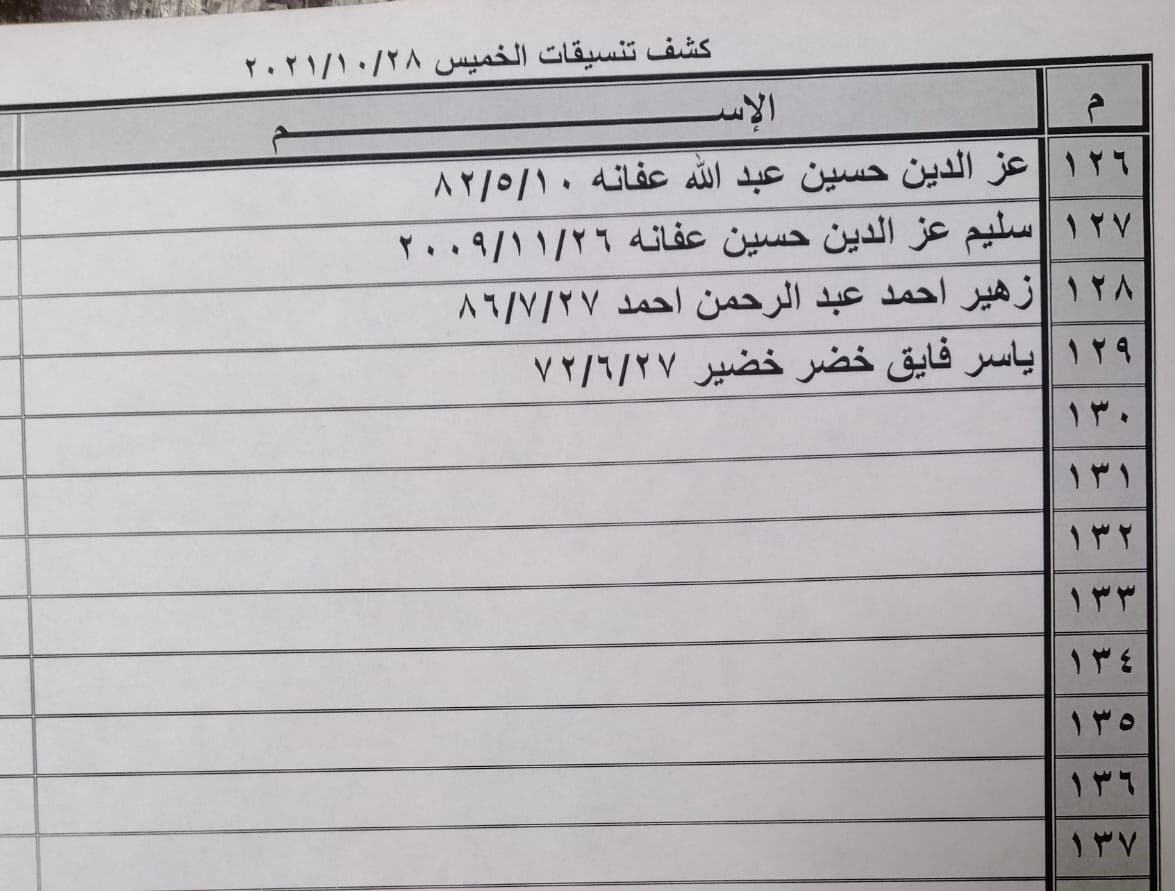 كشف تنسيقات الخميس ٢٠٢١/١٠/٢٨
م الإســـــم
١٢٦ عز الدين حسين عبد الله عفانه ٨٢/٥/١٠
١٢٧ سليم عز الدين حسين عفانه ٢٠٠٩/١١/٢٦
١٢٨ زهير احمد عبد الرحمن احمد ٨٦/٧/٢٧
١٢٩ ياسر فايق خضر خضير ٧٢/٦/٢٧
١٣٠
١٣١
١٣٢
١٣٣
١٣٤
١٣٥
١٣٦
١٣٧